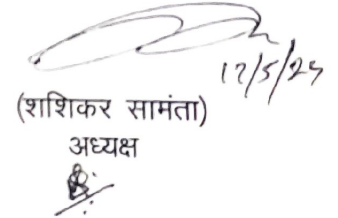 17/5/24
(शशिकर सामंता)
अध्यक्ष